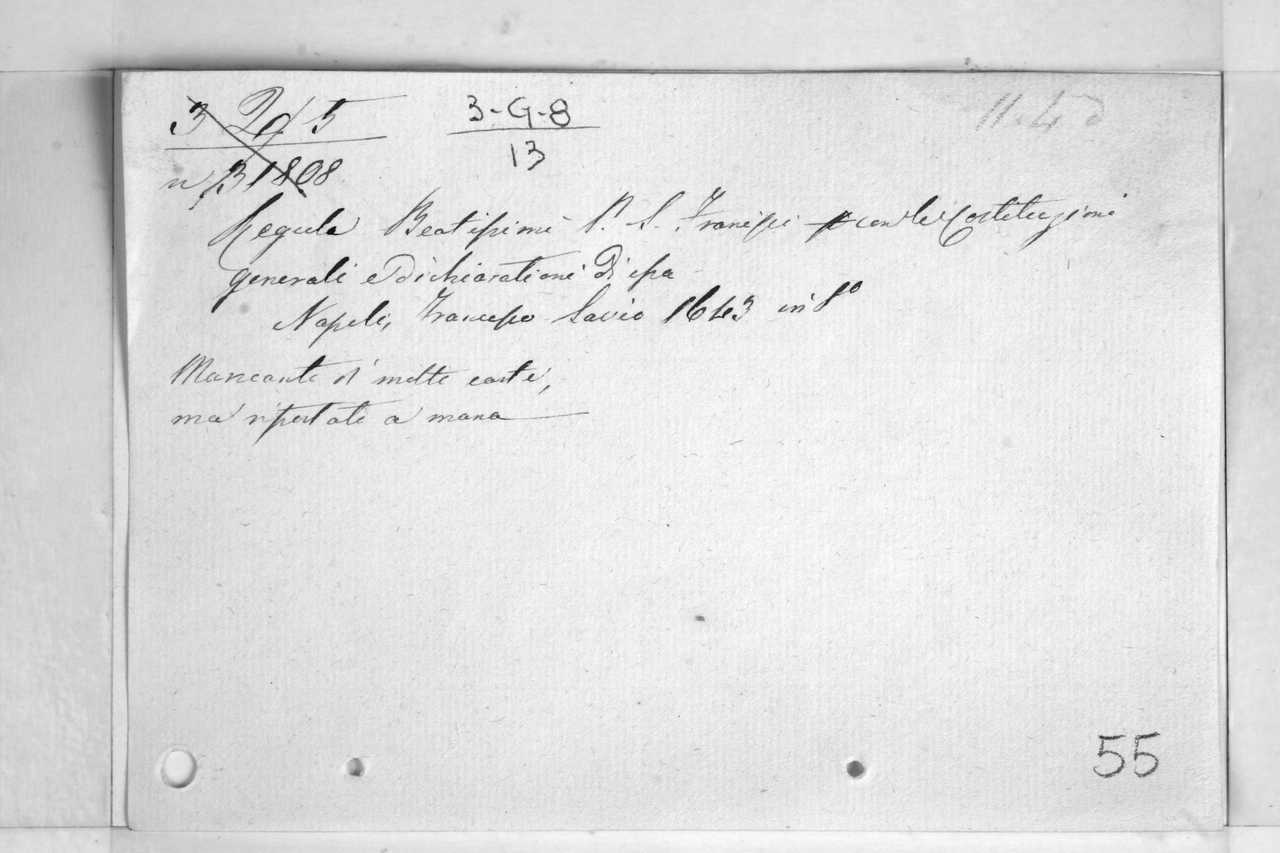 3 2 5
3-G-8
13
n 31808
Regula Beatissimi P. S. Francisci con le Costituzioni
generali e dichiarationi di essa
Napoli, Francesco Savio 1643 in 8º
Mancante di molte carte,
ma riportate a mano
55